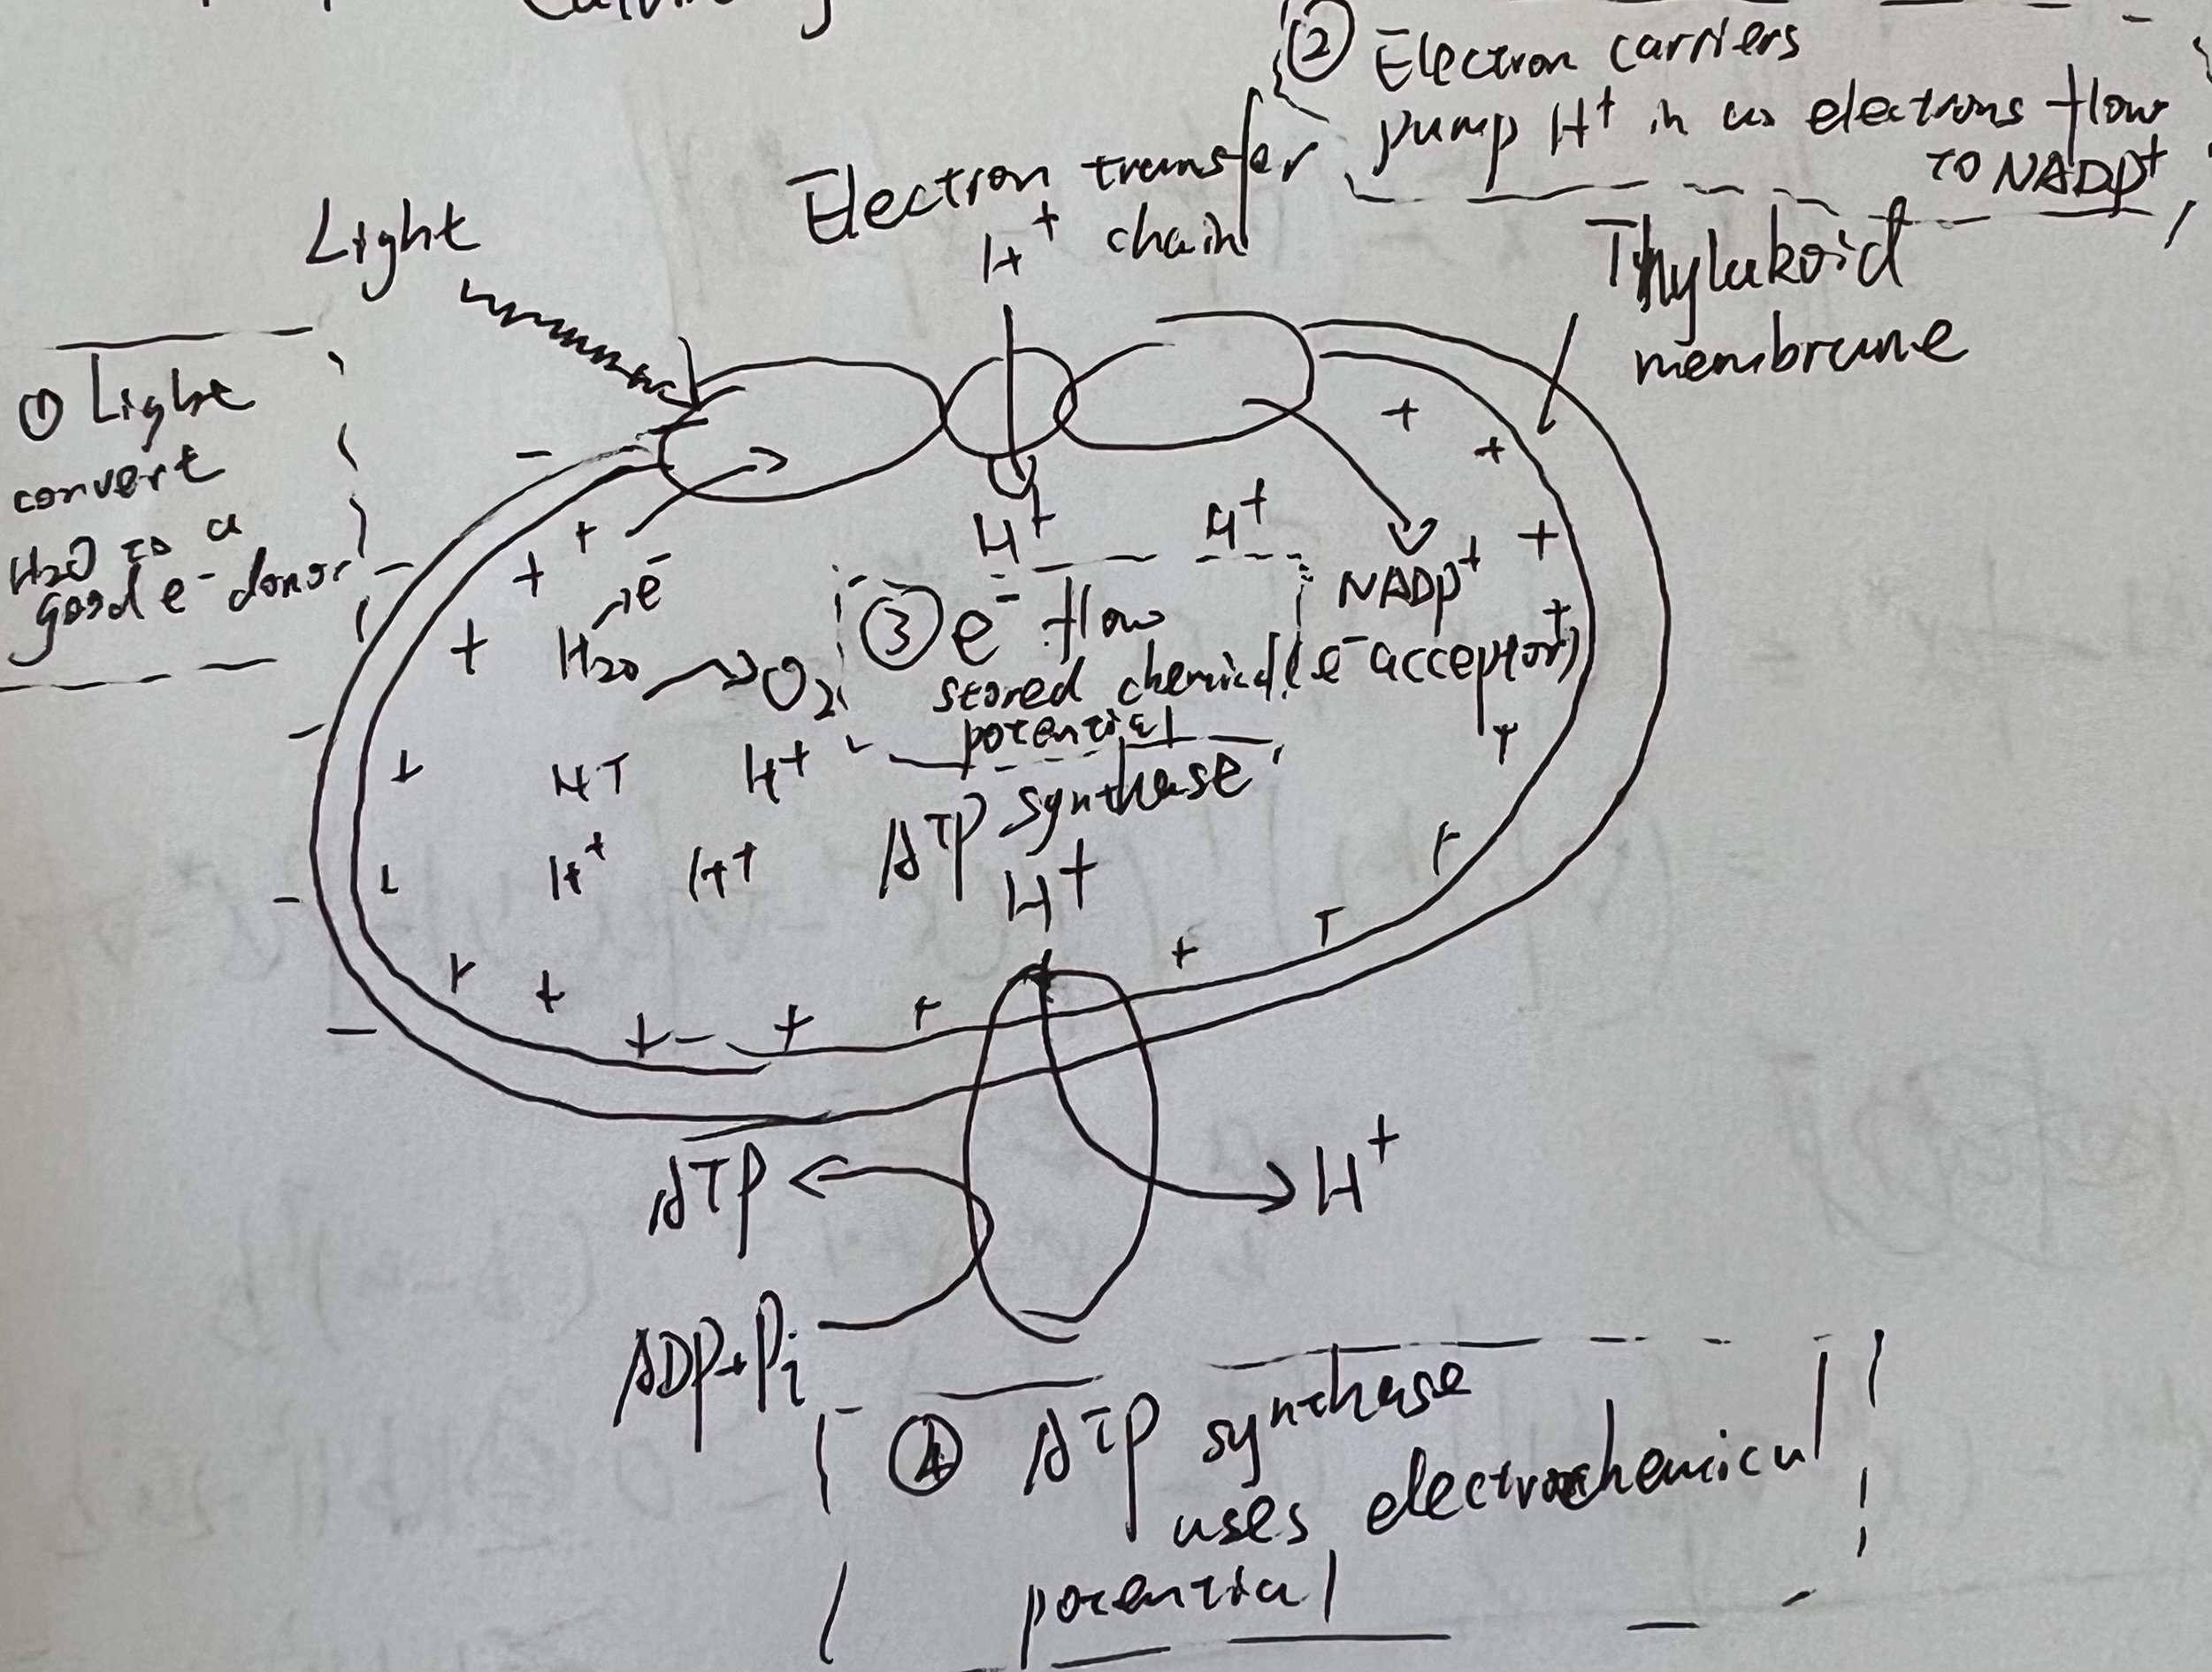 ② Electron carriers
pump H⁺ in as electrons flow
to NADP⁺
Electron transfer
chain
H⁺
Light
Thylakoid
membrane
① Light
convert
H₂O to a
good e⁻ donor
H⁺
H⁺
e⁻
H₂O → O₂
③ e⁻ flow
stored chemical
potential
NADP⁺
(e⁻ acceptor)
H⁺ H⁺
H⁺ H⁺
ATP synthase
H⁺
ATP
H⁺
ADP+Pi
④ ATP synthase
uses electrochemical
potential